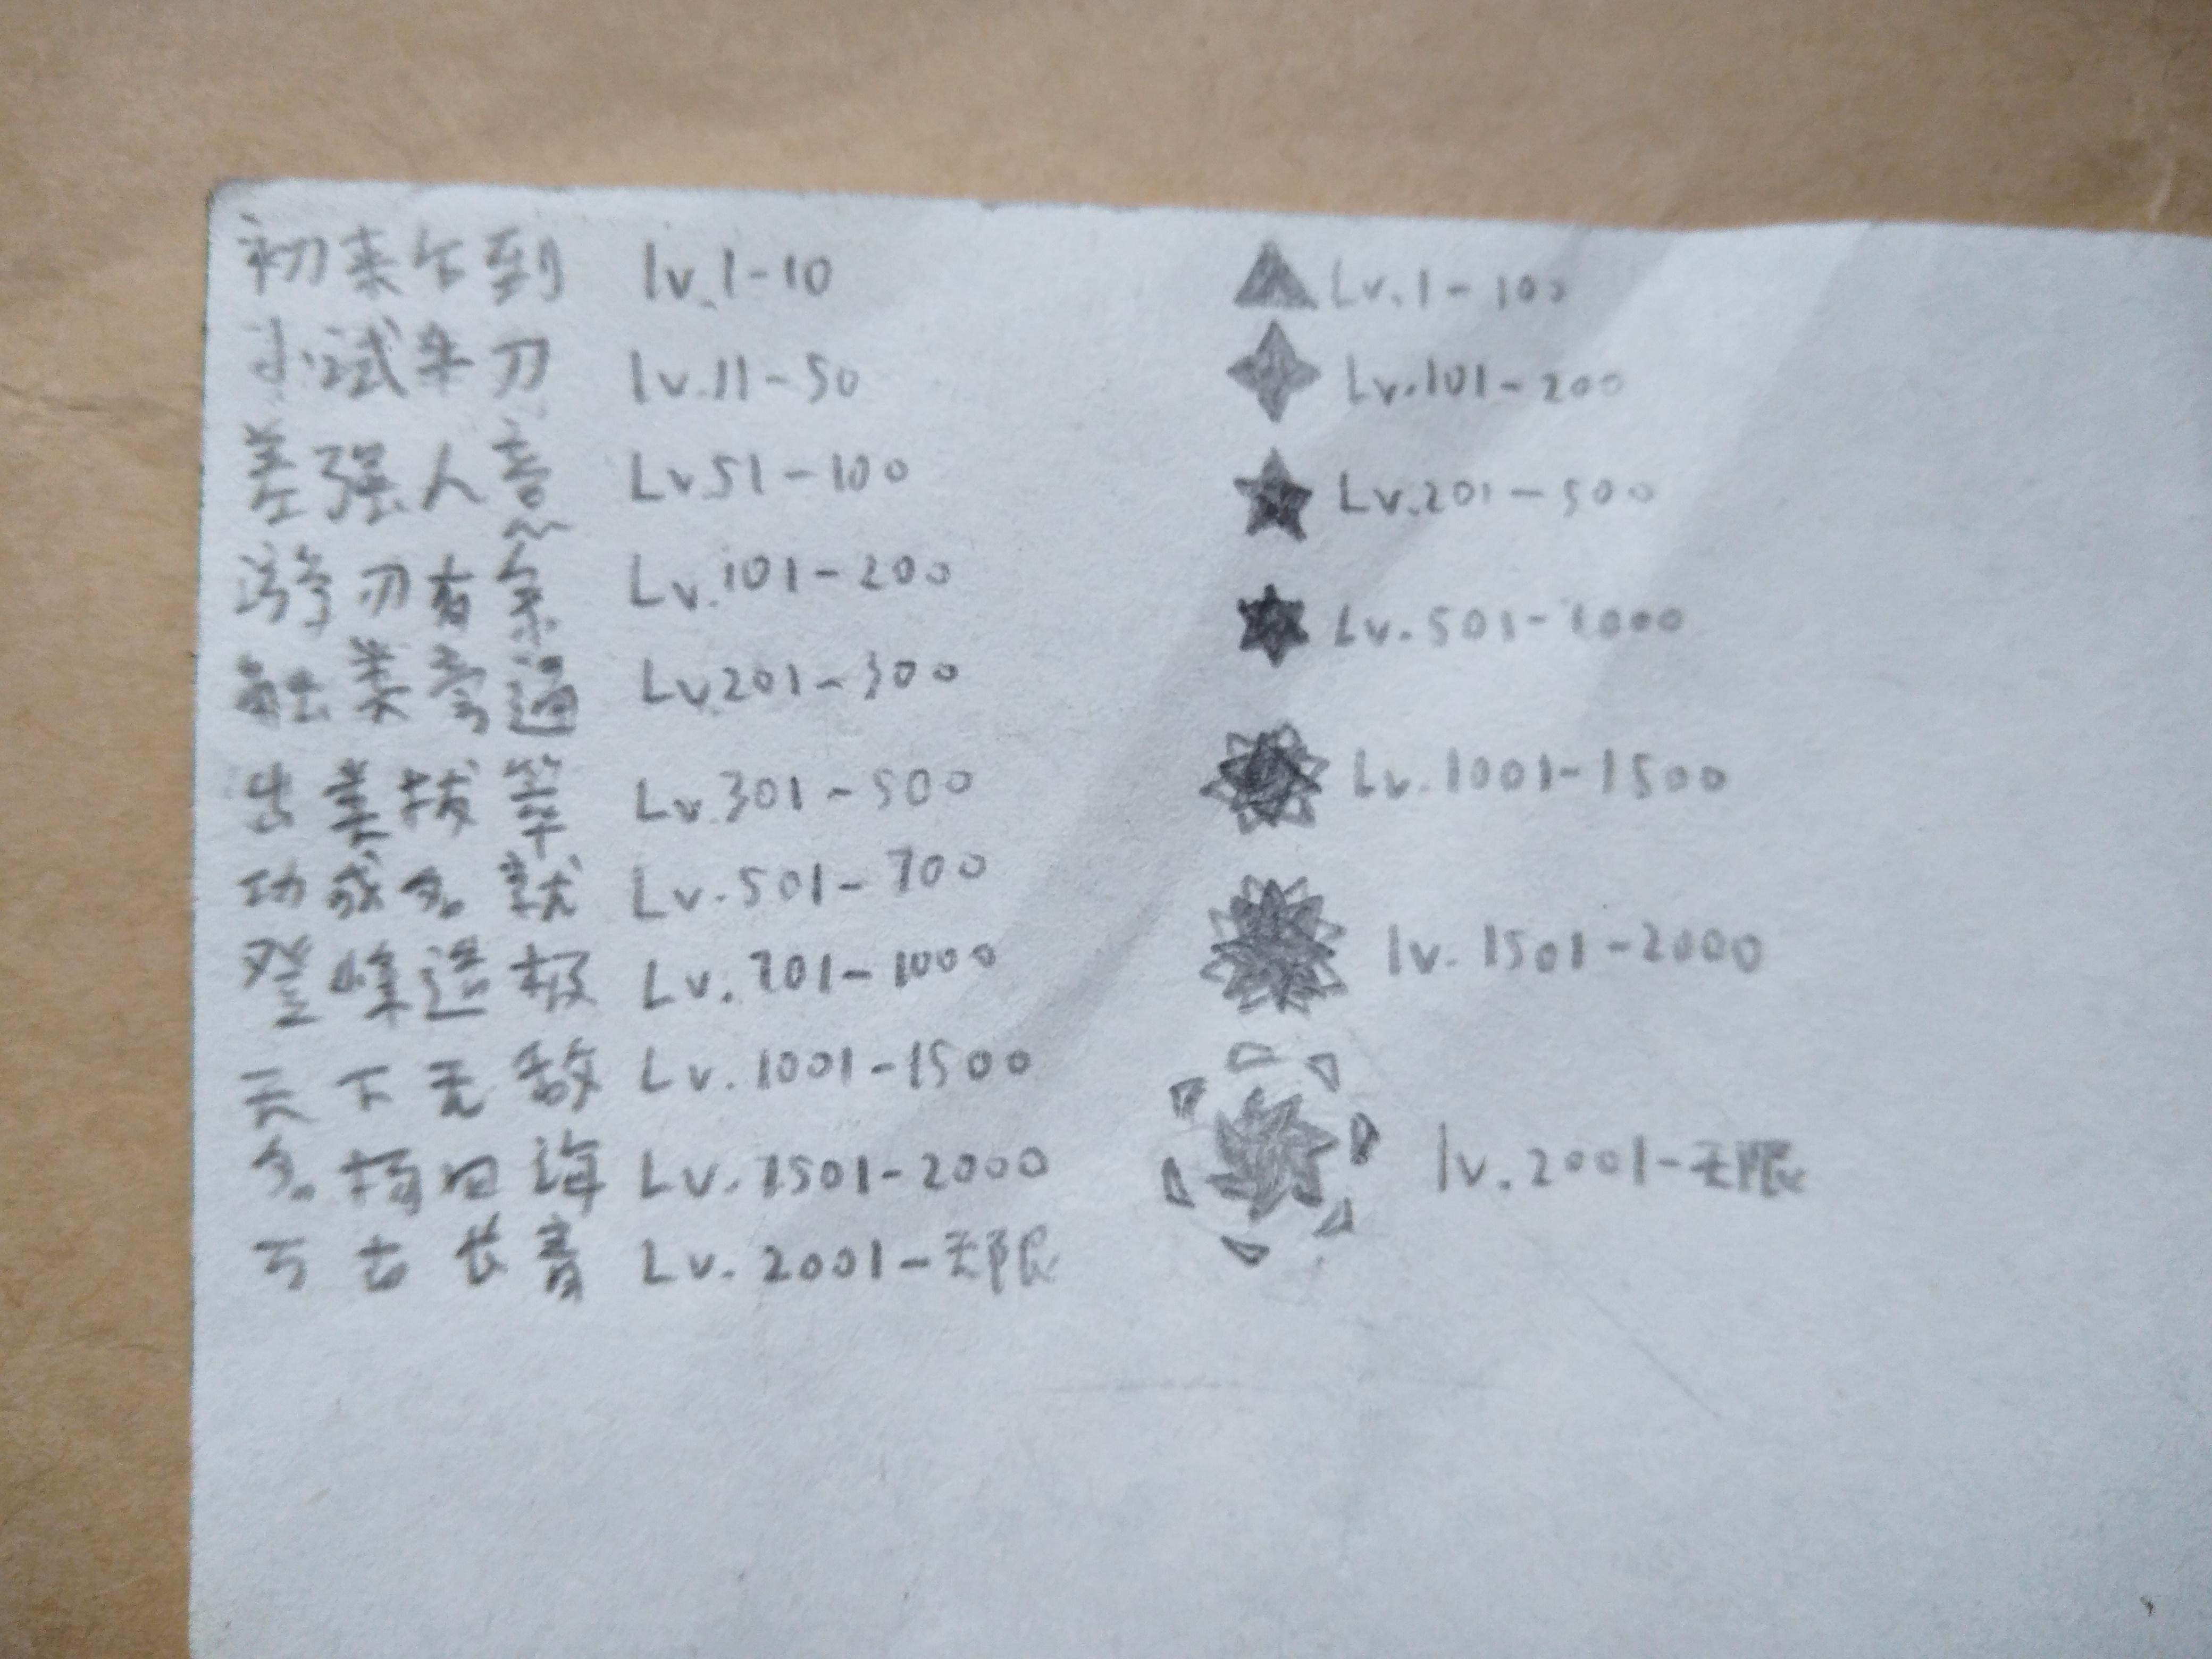 初来乍到 lv.1-10
小试牛刀 lv.11-50
差强人意 Lv51-100
游刃有余 Lv.101-200
融类旁通 Lv201-300
出类拔萃 Lv.301-500
功成名就 Lv.501-700
登峰造极 Lv.701-1000
天下无敌 Lv.1001-1500
名扬四海 Lv.1501-2000
万古长青 Lv.2001-无限
Lv.1-100
Lv.101-200
Lv.201-500
Lv.501-1000
Lv.1001-1500
lv.1501-2000
lv.2001-无限